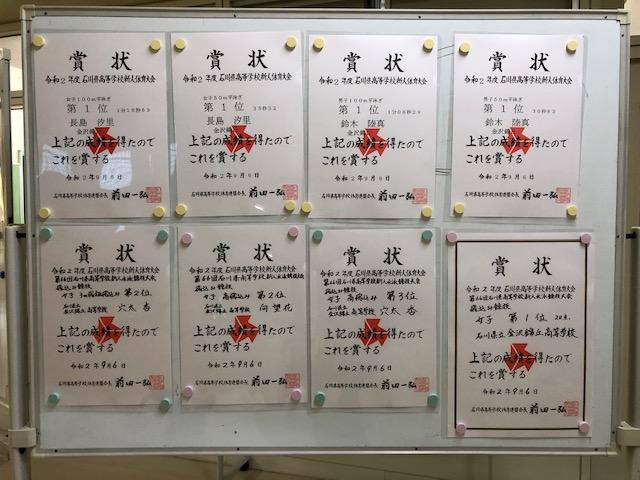 賞状
令和2年度 石川県高等学校新人体育大会
女子100m平泳ぎ
第1位
長島 汐里
上記の成績を得たので
これを賞する
令和2年9月6日
石川県高等学校体育連盟会長 前田一弘
賞状
令和2年度 石川県高等学校新人体育大会
女子50m平泳ぎ
第1位
長島 汐里
上記の成績を得たので
これを賞する
令和2年9月6日
石川県高等学校体育連盟会長 前田一弘
賞状
令和2年度 石川県高等学校新人体育大会
男子100m平泳ぎ
第1位
鈴木 陸真
上記の成績を得たので
これを賞する
令和2年9月6日
石川県高等学校体育連盟会長 前田一弘
賞状
令和2年度 石川県高等学校新人体育大会
男子50m平泳ぎ
第1位
鈴木 陸真
上記の成績を得たので
これを賞する
令和2年9月6日
石川県高等学校体育連盟会長 前田一弘
賞状
令和2年度 石川県高等学校新人体育大会
飛込み競技
第2位
石川県立
金沢錦丘高等学校 穴太 杏
上記の成績を得たので
これを賞する
令和2年9月6日
石川県高等学校体育連盟会長 前田一弘
賞状
令和2年度 石川県高等学校新人体育大会
飛込み競技
女子 高飛込み 第2位
石川県立
金沢錦丘高等学校 向 望花
上記の成績を得たので
これを賞する
令和2年9月6日
石川県高等学校体育連盟会長 前田一弘
賞状
令和2年度 石川県高等学校新人体育大会
飛込み競技
女子 高飛込み 第3位
石川県立
金沢錦丘高等学校 穴太 杏
上記の成績を得たので
これを賞する
令和2年9月6日
石川県高等学校体育連盟会長 前田一弘
賞状
令和2年度 石川県高等学校新人体育大会
飛込み競技
女子 第1位
石川県立 金沢錦丘高等学校
上記の成績を得たので
これを賞する
令和2年9月6日
石川県高等学校体育連盟会長 前田一弘